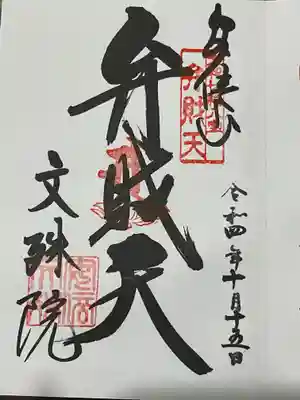 弁財天
令和四年十月十五日
弁財天
文殊院